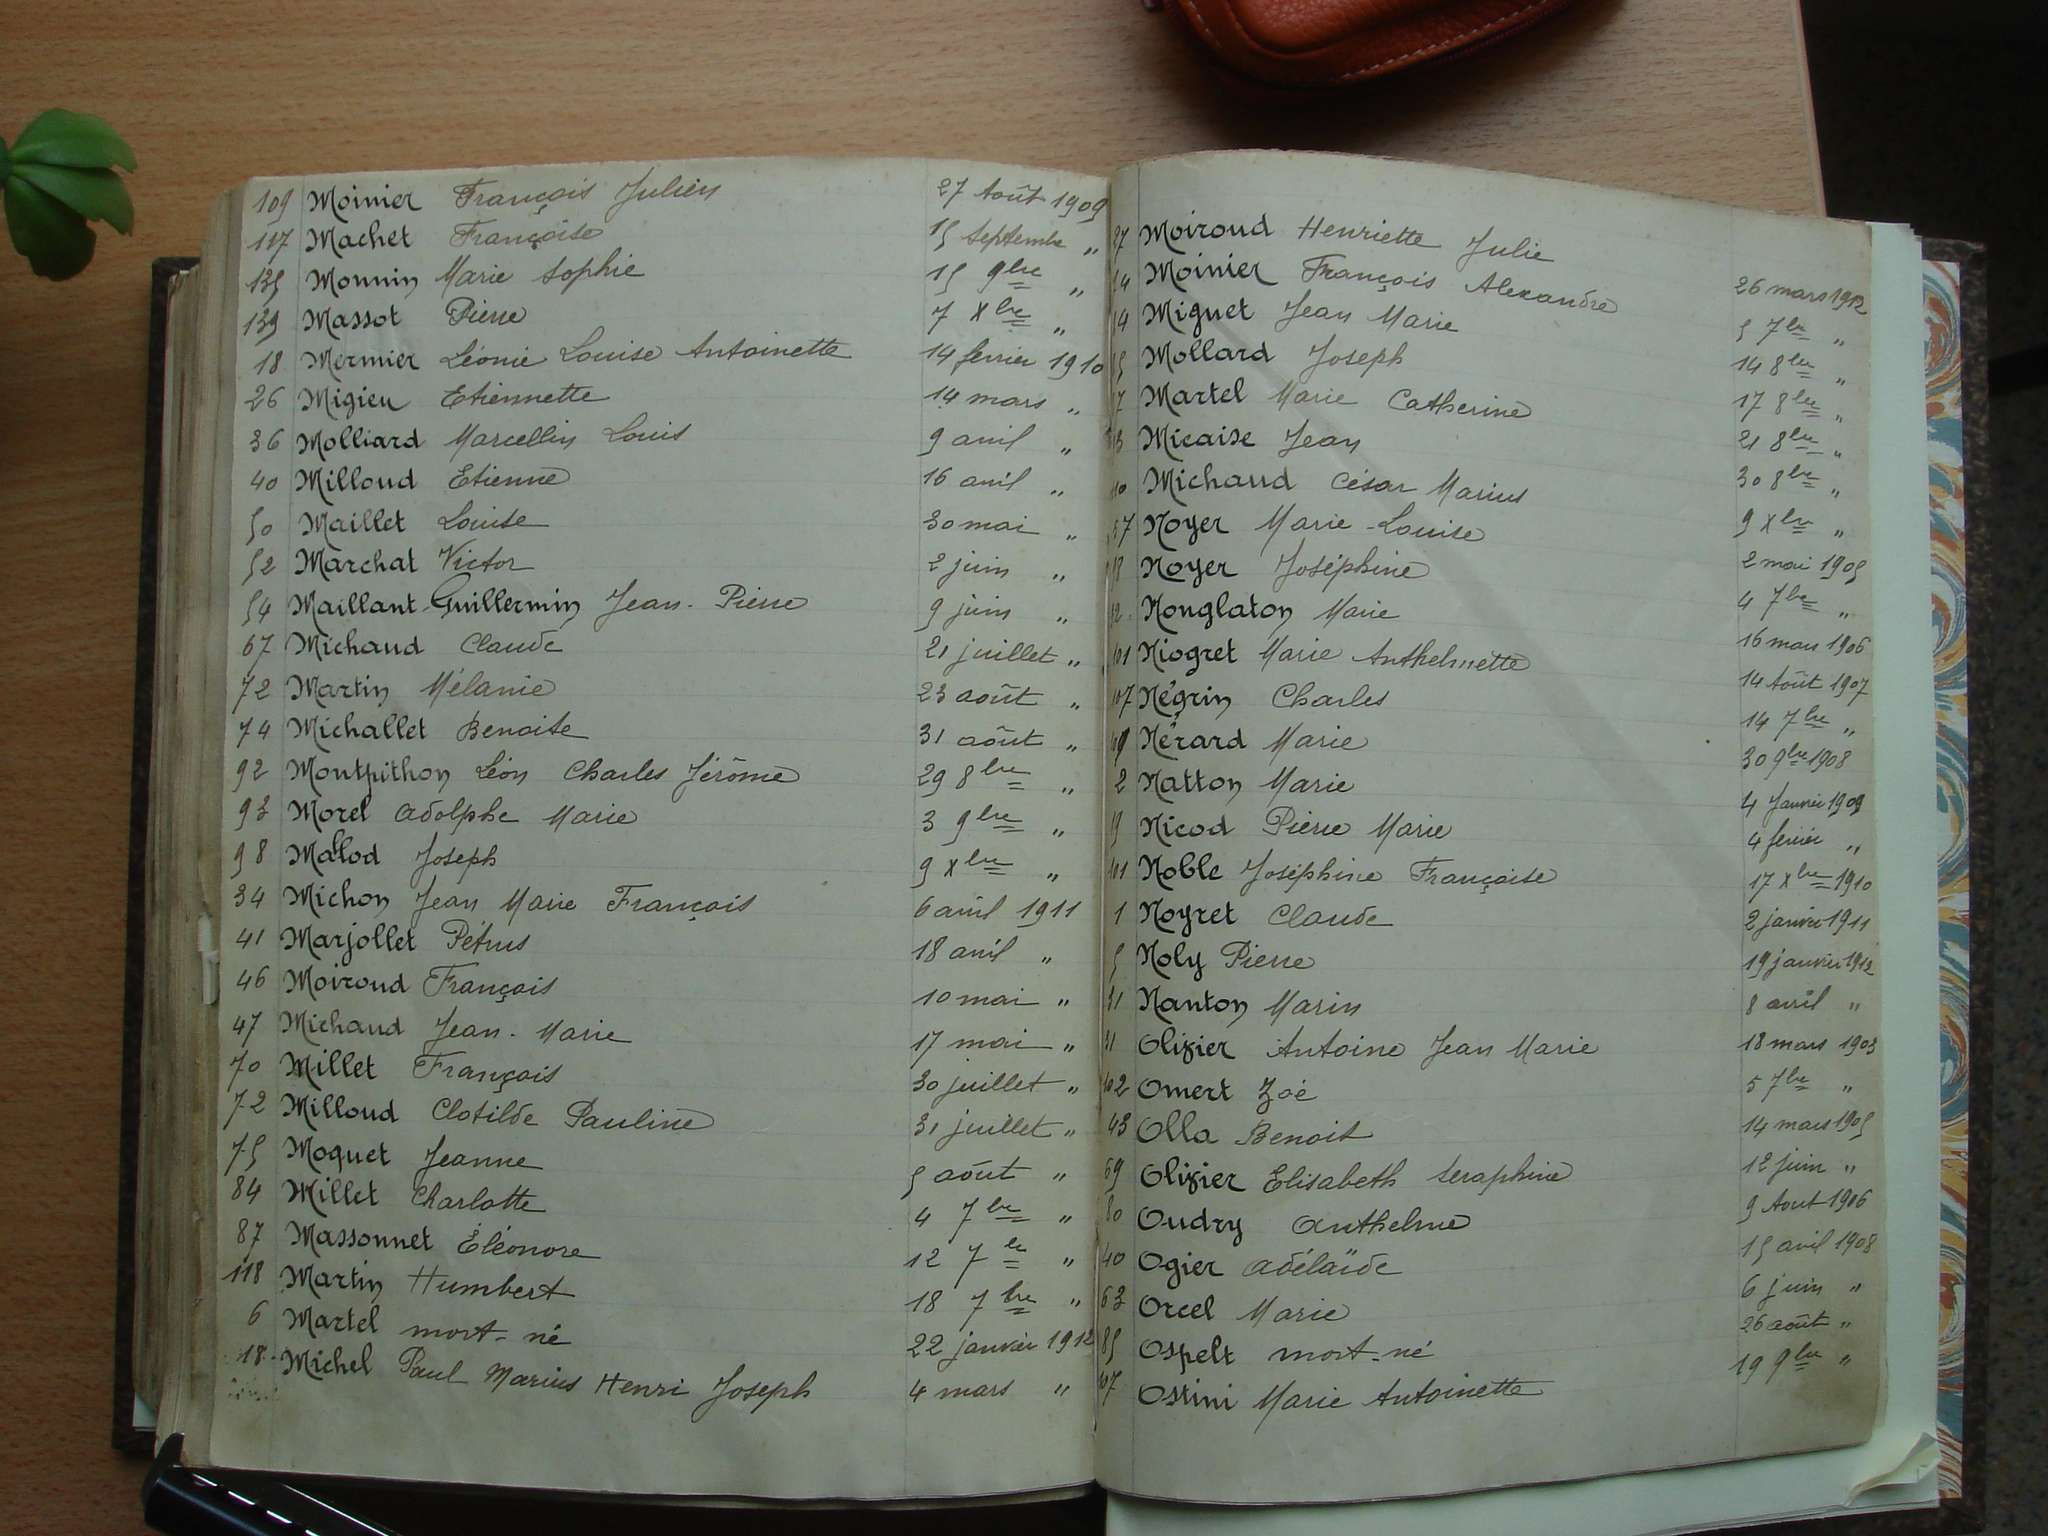 109 Moinier François Julien 27 Août 1909
117 Machet Françoise 15 Septembre "
135 Monnin Marie Sophie 15 9bre "
139 Massot Pierre 7 Xbre "
18 Mermier Léonie Louise Antoinette 14 fevrier 1910
26 Migieu Etiennette 14 mars "
36 Molliard Marcellin Louis 9 avril "
40 Milloud Etienne 16 avril "
50 Maillet Louise 30 mai "
52 Marchat Victor 2 juin "
54 Maillant-Guillermin Jean-Pierre 9 juin "
67 Michaud Claude 21 juillet "
72 Martin Mélanie 23 août "
74 Michallet Benoite 31 août "
92 Montpithon Léon Charles Jérôme 29 8bre "
93 Morel Adolphe Marie 3 9bre "
98 Mallod Joseph 9 Xbre "
34 Michon Jean Marie François 6 avril 1911
41 Marjollet Pétrus 18 avril "
46 Moiroud François 10 mai "
47 Michaud Jean-Marie 17 mai "
70 Millet François 30 juillet "
72 Milloud Clotilde Pauline 31 juillet "
75 Moquet Jeanne 5 août "
84 Millet Charlotte 4 7bre "
87 Massonnet Éléonore 12 7bre "
118 Martin Humbert 18 7bre "
6 Martel mort-né 22 janvier 1912
18 Michel Paul Marius Henri Joseph 4 mars "
27 Moiroud Henriette Julie 26 mars 1912
Moinier François Alexandre 5 7bre "
Miguet Jean Marie 14 8bre "
Mollard Joseph 17 8bre "
Martel Marie Catherine 21 8bre "
Micaise Jean 30 8bre "
Michaud César Marius 9 Xbre "
Noyer Marie-Louise 2 mai 1905
Noyer Joséphine 4 7bre "
Nonglaton Marie 16 mars 1906
101 Niogret Marie Anthelmette 14 Août 1907
107 Négrin Charles 14 7bre "
Nérard Marie 30 9bre 1908
2 Natton Marie 4 Janvier 1909
19 Nicod Pierre Marie 4 fevrier "
101 Noble Joséphine Françoise 17 Xbre 1910
1 Noyret Claude 2 janvier 1911
5 Noly Pierre 19 janvier 1912
31 Nanton Marin 8 avril "
31 Olivier Antoine Jean Marie 18 mars 1903
102 Omert Zoé 5 7bre "
43 Olla Benoit 14 mars 1905
69 Olivier Elisabeth Seraphine 12 juin "
80 Oudry Anthelme 9 Aout 1906
40 Ogier Adélaïde 15 avril 1908
63 Orcel Marie 6 juin "
85 Ospelt mort-né 26 août "
107 Ostini Marie Antoinette 19 9bre "